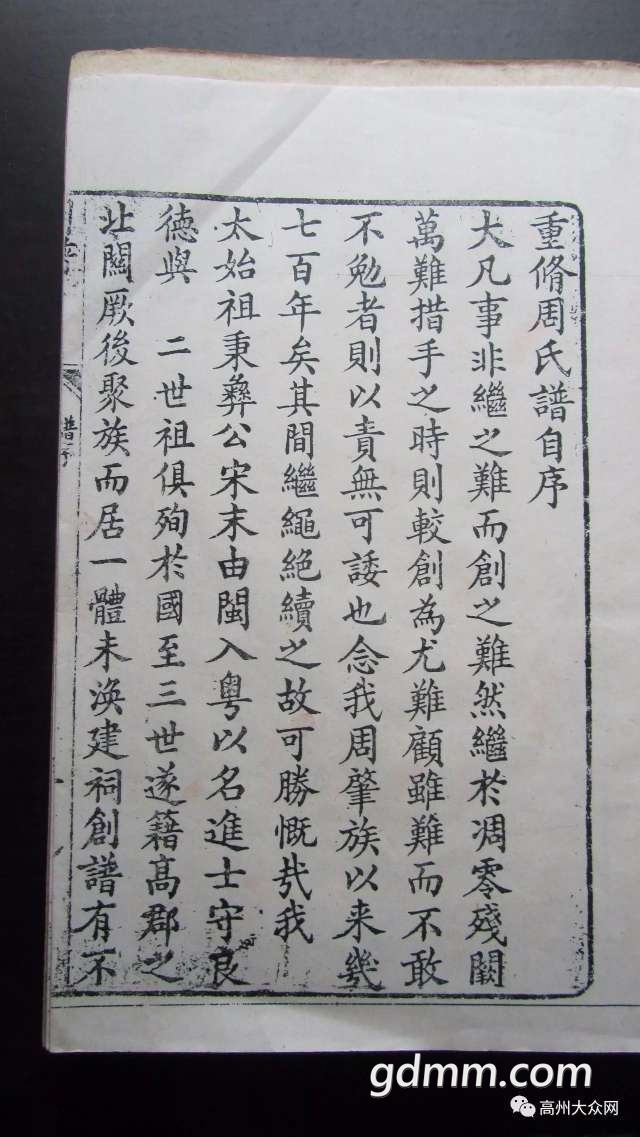 重脩周氏譜自序
大凡事非繼之難而創之難然繼於凋零殘闕
萬難措手之時則較創為尤難顧雖難而不敢
不勉者則以責無可諉也念我周肇族以来幾
七百年矣其間繼繩絶續之故可勝慨㢤我
太始祖秉彝公宋末由閩入粤以名進士守良
德與　二世祖俱殉於國至三世遂籍髙郡之
北關厥後聚族而居一體未渙建祠創譜有不
譜序
gdmm.com
高州大众网